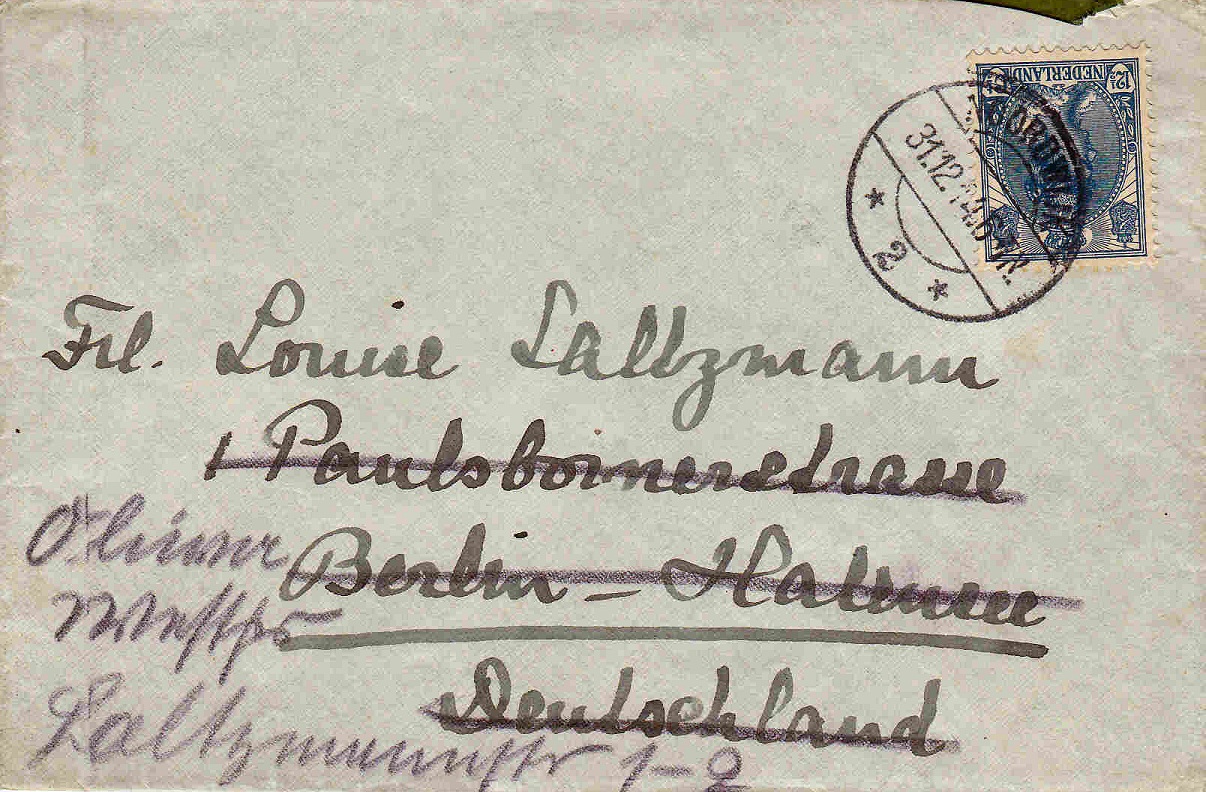 NEDERLAND
12½
31.12
2
Frl. Louise Saltzmann
Paulsbornerstrasse
Berlin - Halensee
Deutschland
Saltzmannstr 1-2